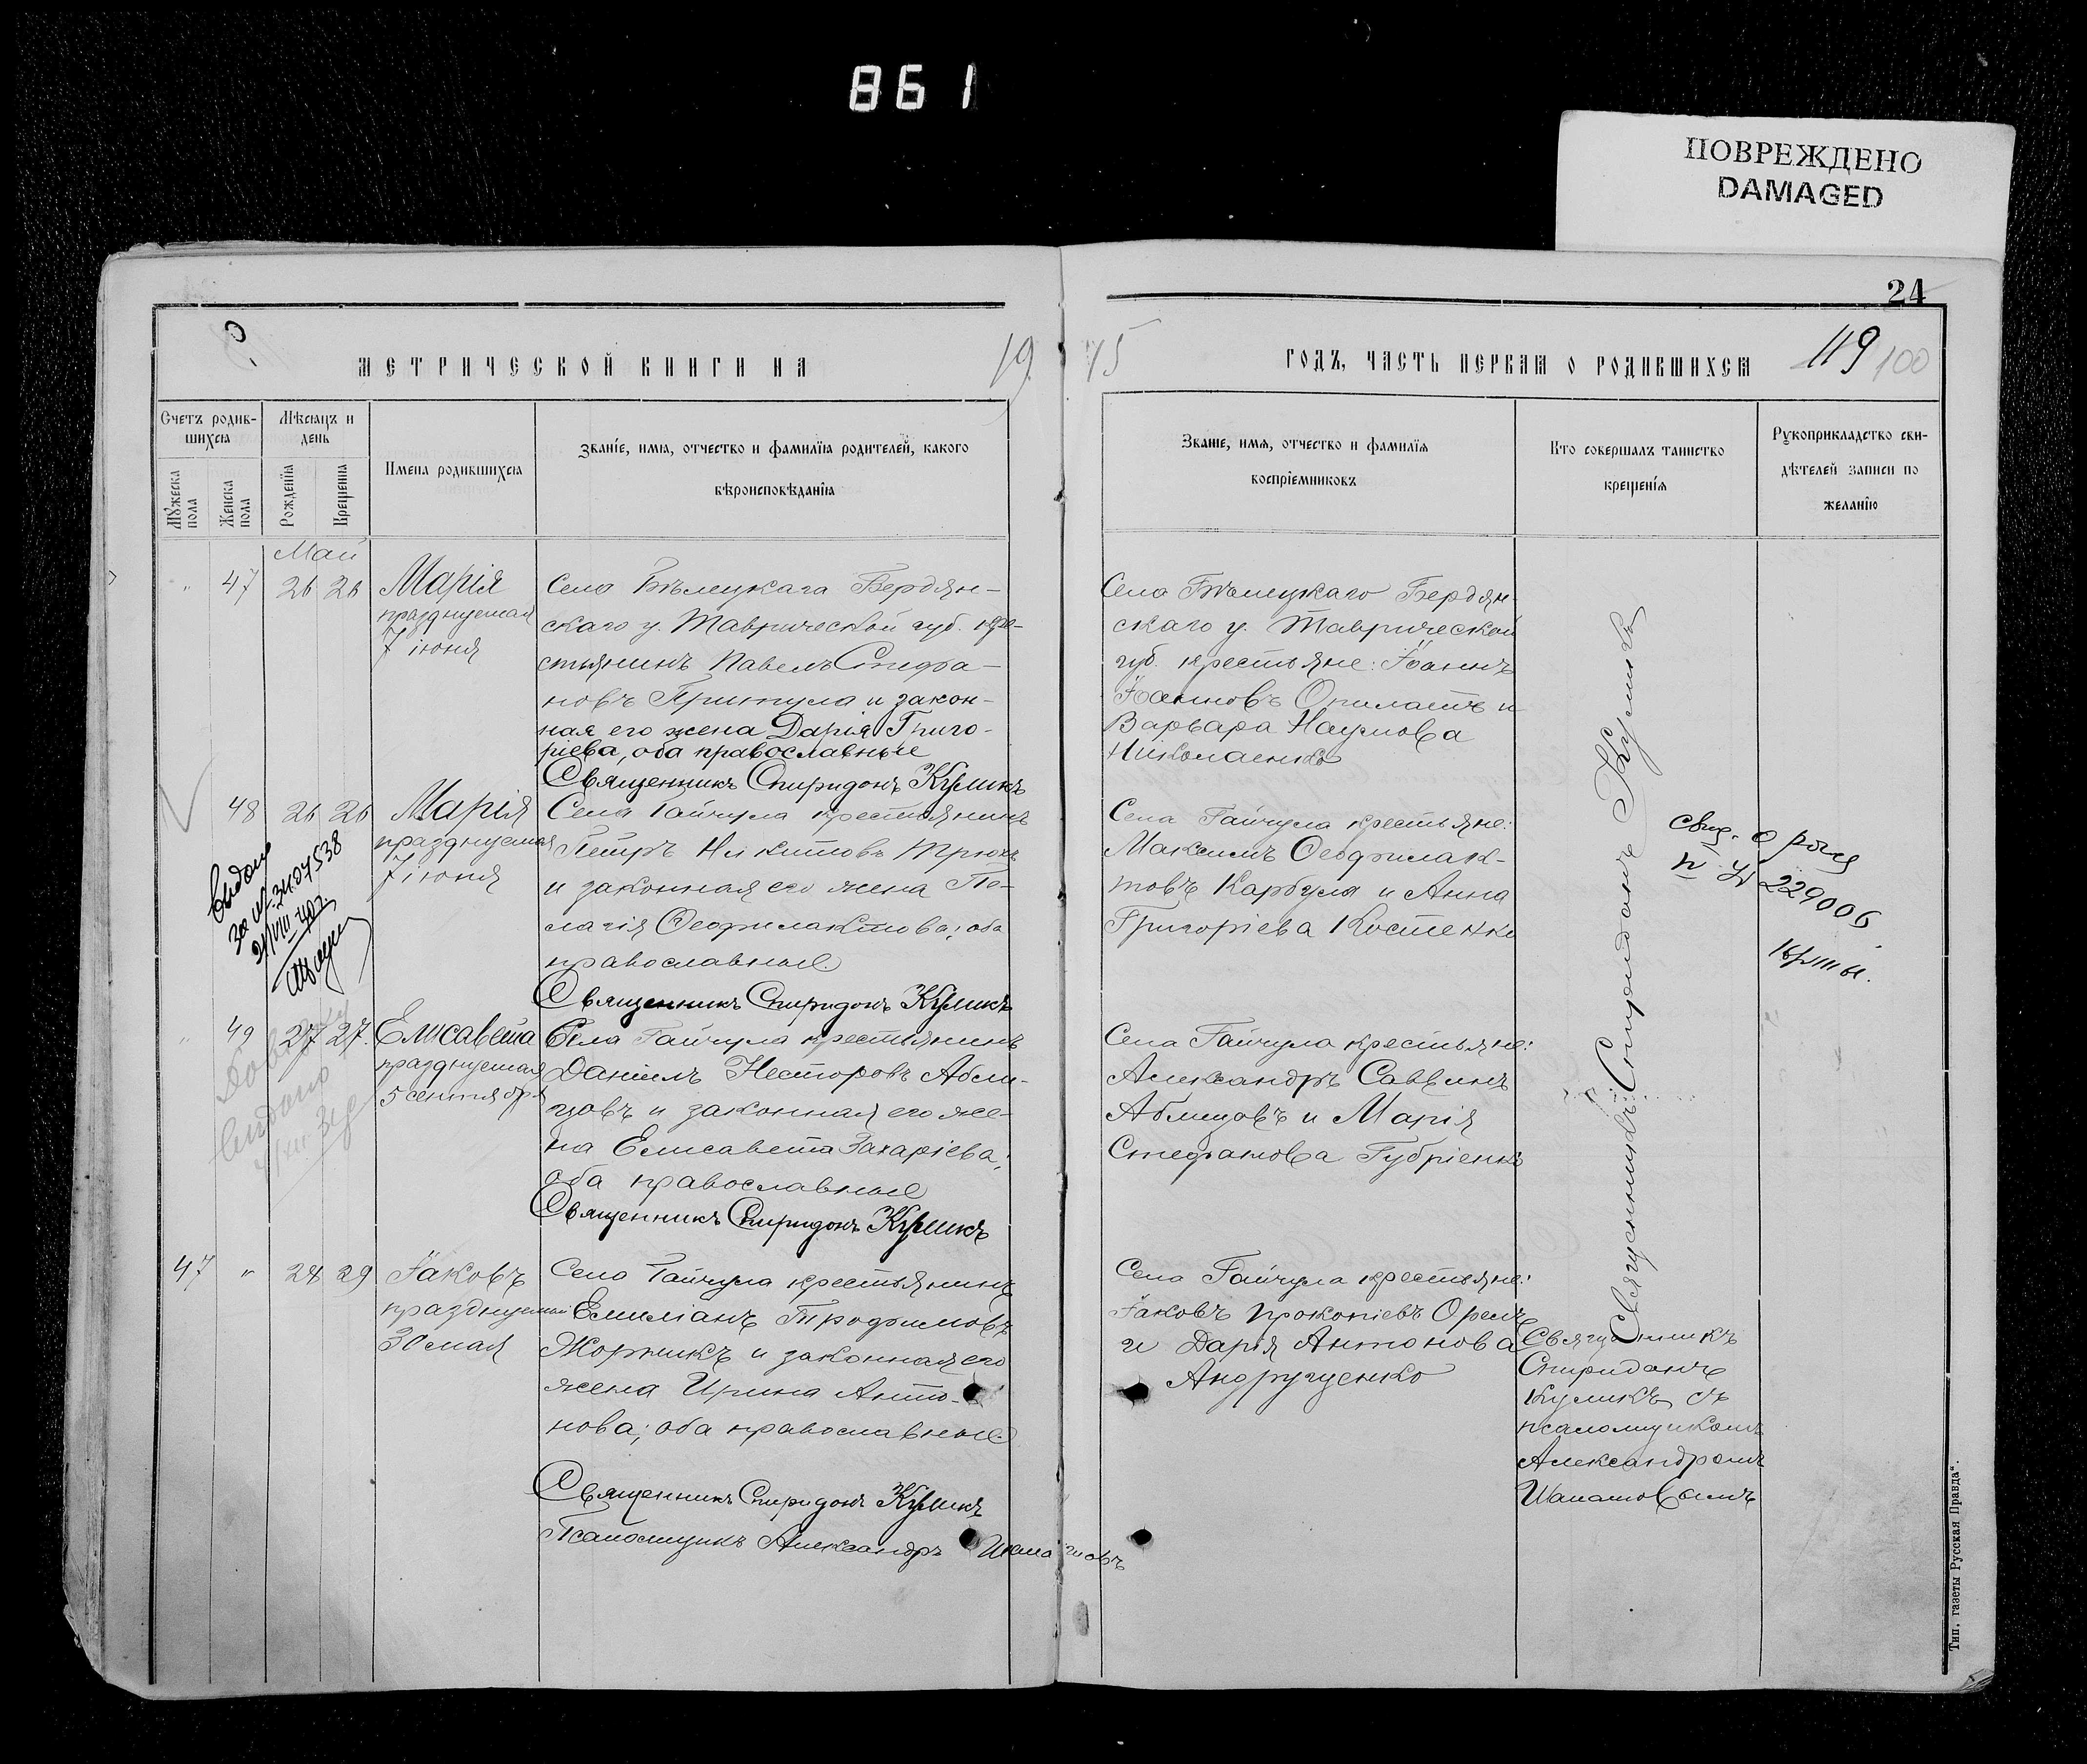 861
ПОВРЕЖДЕНО
DAMAGED
24
МЕТРИЧЕСКОЙ КНИГИ НА 19
15 ГОДЪ, ЧАСТЬ ПЕРВАЯ О РОДИВШИХСЯ 119 100
Счетъ родив-
шихся
Мужеска пола
Женска пола
Мѣсяцъ и
день
Рожденія
Крещенія
Имена родившихся
Званіе, имя, отчество и фамилія родителей, какого
вѣроисповѣданія
Званіе, имя, отчество и фамилія
воспріемниковъ
Кто совершалъ таинство
крещенія
Рукоприкладство сви-
дѣтелей записи по
желанію
Май
" 47 26 26 Марія
празднуемая
7 іюня
Села Бѣлецкаго Бердян-
скаго у. Таврической губ. кре-
стьянинъ Павелъ Стефа-
новъ Притула и закон-
ная его жена Дарія Григо-
ріева, оба православные
Священникъ Спиридонъ Куликъ
Села Бѣлецкаго Бердян-
скаго у. Таврической
губ. крестьяне: Іоаннъ
Іоанновъ Опилатъ и
Варвара Наумова
Николаенко
48 26 26 Марія
празднуемая
7 іюня
Села Гайчула крестьянинъ
Петръ Никитовъ Трюхъ
и законная его жена Пе-
лагія Ѳеофилактова; оба
православные.
Священникъ Спиридонъ Куликъ
Села Гайчула крестьяне:
Максимъ Ѳеофилак-
товъ Карбуля и Анна
Григоріева Костенко
Видано
21/VIII
свид. о рожд
229006
" 49 27 27 Елисавета
празднуемая
5 сентября
Села Гайчула крестьянинъ
Даніилъ Несторовъ Абли-
цовъ и законная его же-
на Елисавета Захаріева;
оба православные
Священникъ Спиридонъ Куликъ
Села Гайчула крестьяне:
Александръ Саввинъ
Аблицовъ и Марія
Стефанова Губріенко
Довідку
видано
Священникъ Спиридонъ Куликъ
47 " 24 29 Іаковъ
празднуемый
30 мая
Села Гайчула крестьянинъ
Емиліанъ Трофимовъ
Жорникъ и законная его
жена Ирина Анто-
нова; оба православные.
Священникъ Спиридонъ Куликъ
Псаломщикъ Александръ
Села Гайчула крестьяне:
Іаковъ Прокопіевъ Орелъ
и Дарія Антонова
Андрущенко
Священникъ
Спиридонъ
Куликъ съ
псаломщикомъ
Александромъ
Тип. газеты Русская Правда".